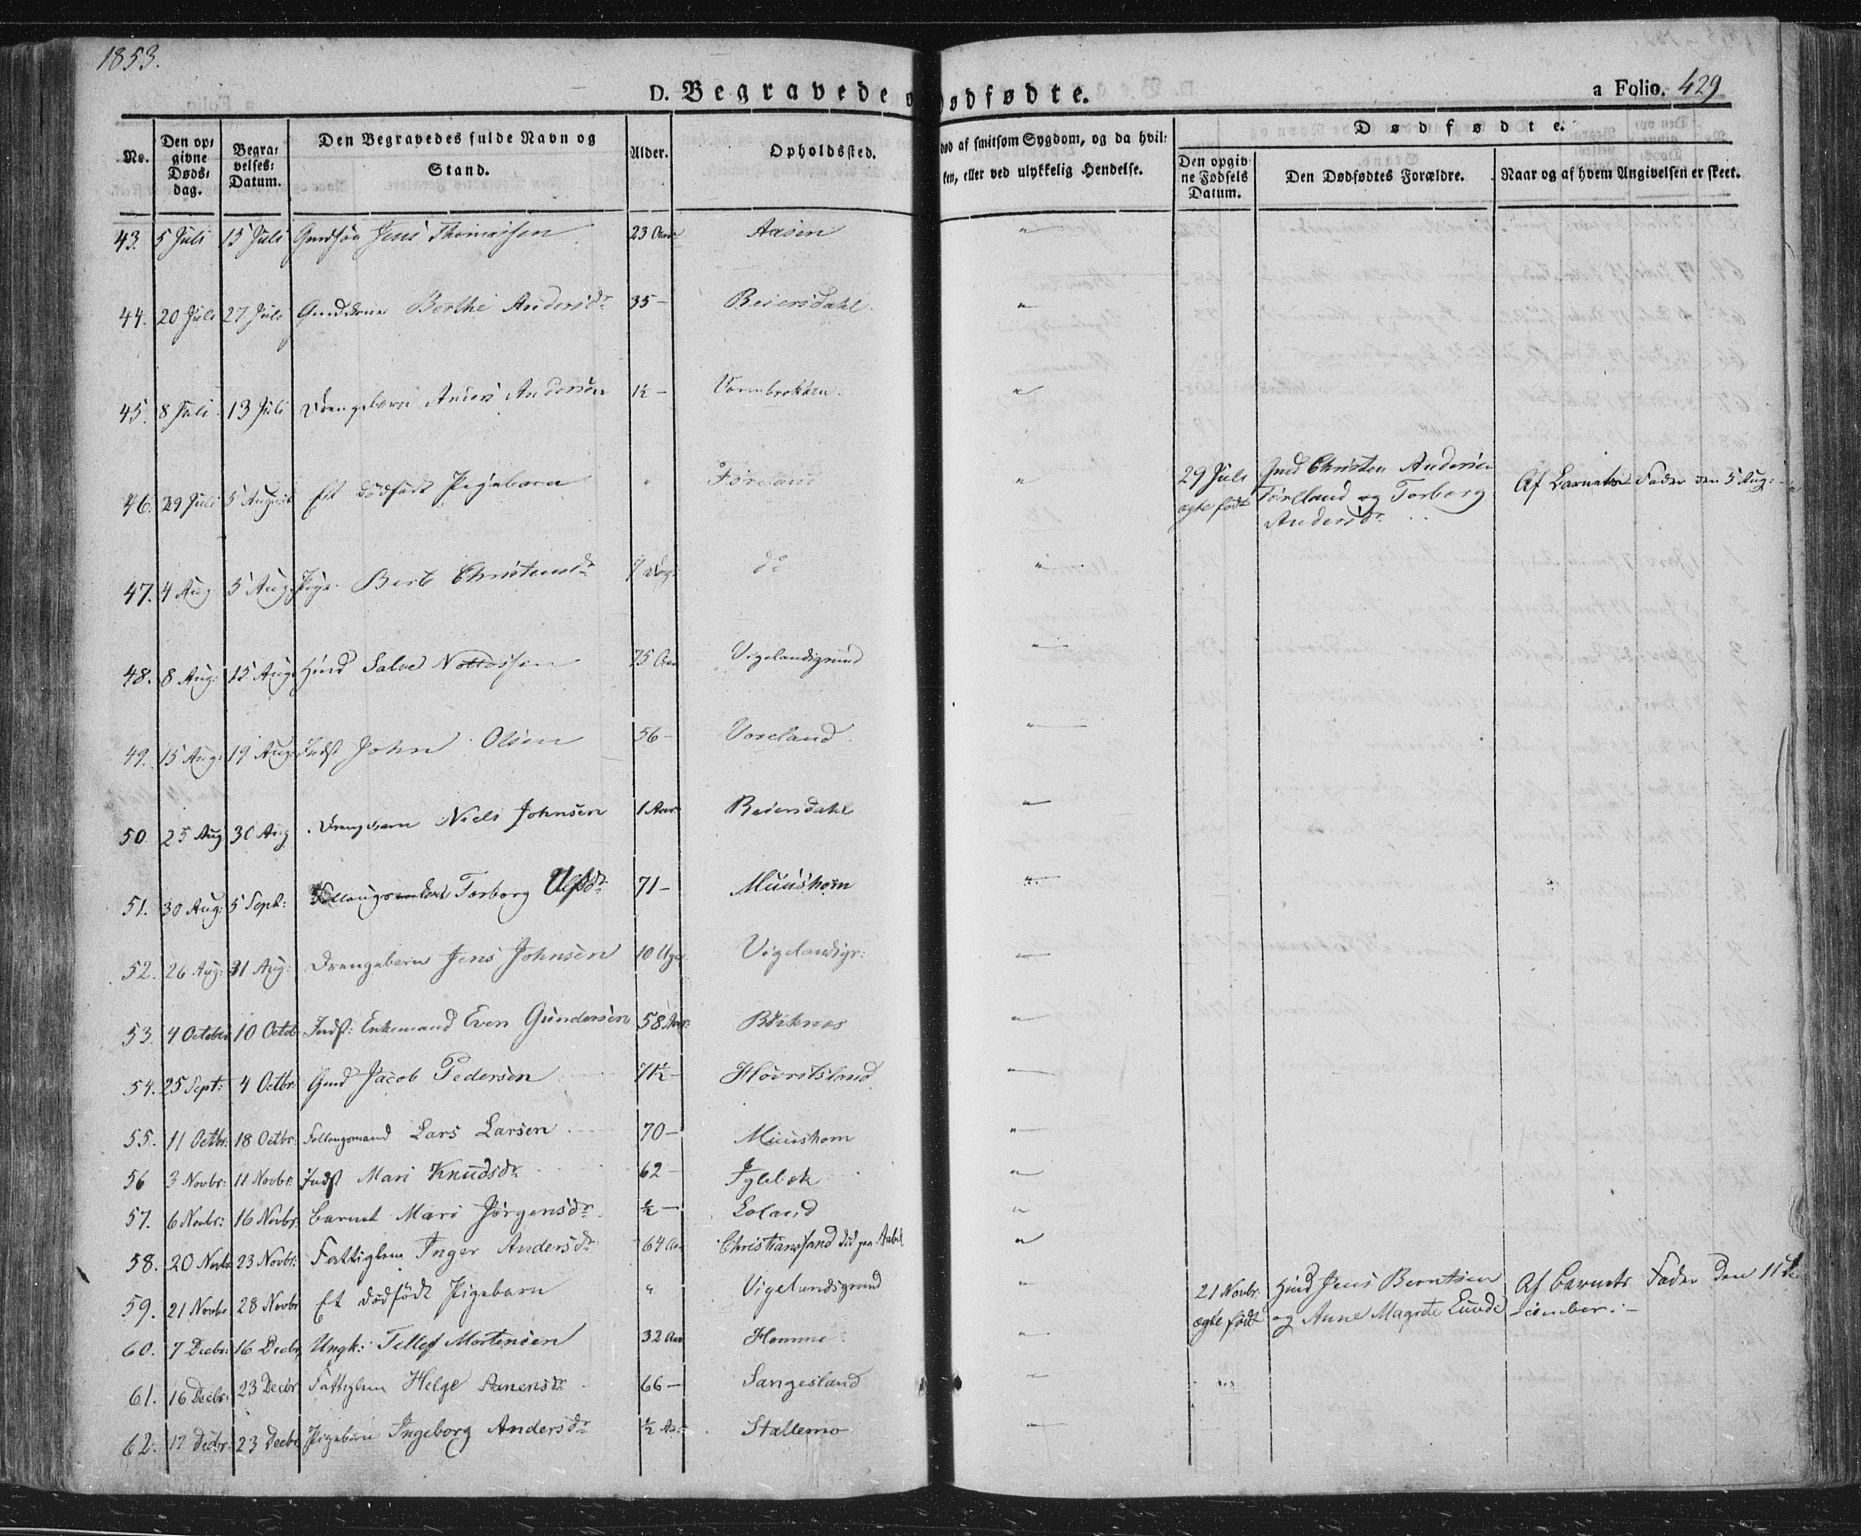 1853.
D. Begravede o
ødfødte.
a Folio. 429
No.
Den op-
givne
Døds-
dag.
Begra-
velses-
Datum.
Den Begravedes fulde Navn og
Stand.
Alder.
Opholdssted.
død af smitsom Sygdom, og da hvil-
ken, eller ved ulykkelig Hendelse.
Dødfødte.
Den opgiv-
ne Fødsels
Datum.
Den Dødfødtes Forældre.
Naar og af hvem Angivelsen er skeet.
43. 5 Juli 15 Juli Jens Thomassen 23 Aasen "
44. 20 Juli 27 Juli Berthe Andersdr 35 — Beiersdahl. "
45. 8 Juli 13 Juli Drengebarn Anders Andersen 1½ — "
46. 29 Juli 5 August Et dødfødt Pigebarn " Føreland "
29 Juli
ægte født
Gmd Christen Andersen
Førelland og Torborg
Andersdr
Af Barnets Fader den 5 Aug:
47. 4 Aug 5 Aug: Pige Berte Christensdr do "
48. 8 Aug: 15 Aug: Hmd Salve 75 Vigelandsgrund "
49. 15 Aug: 19 Aug: Indst John Olsen 56 — Voreland "
50. 25 Aug 30 Aug Drengebarn Niels Johnsen 1 Aar Beiersdahl "
51. 30 Aug: 5 Sept: Torborg Ulfsdr 71 — Muushom "
52. 26 Aug: 31 Aug: Drengebarn Jens Johnsen 10 Uger Vigelandsgr: "
53. 4 October 10 Octob Indst: Enkemand Even Gundersen 58 Aar "
54. 25 Sept: 4 Octbr: Gmd Jacob Pedersen 71½ — "
55. 11 Octbr: 18 Octbr: Follougsmand Lars Larsen 70 — Muushom "
56 3 Novbr: 11 Novbr: Indst Mari Knudsdr 62 — Iglebæk "
57. 6 Novbr: 16 Novbr: Barnet Mari Jørgensdr ½ — Loland "
58. 20 Novbr 23 Novbr: Fattiglem Inger Andersdr 64 Aar Christianssand "
59. 21 Novbr 28 Novbr Et dødfødt Pigebarn " Vigelandsgrund "
21 Novbr:
ægte født
Hmd Jens Berntsen
og Anne Magrete Lunde
Af Barnets Fader den 11 De-
cember.
60. 7 Decbr: 16 Decbr, Ungk: Tellef Mortensen 32 Aar Homme "
61. 16 Decbr: 23 Decbr Fattiglem Helge 66 — Sangesland "
62. 17 Decbr: 23 Decbr Pigebarn Ingeborg Andersdr ½ Aar Stallemo "